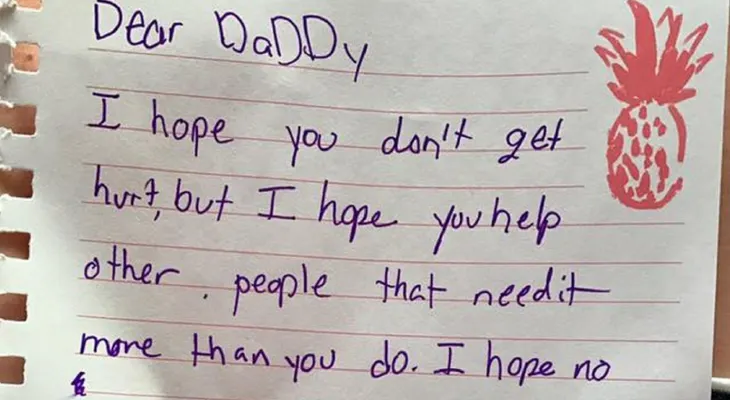 Dear DaDDy
I hope you don't get
hurt, but I hope you help
other. people that need it
more than you do. I hope no